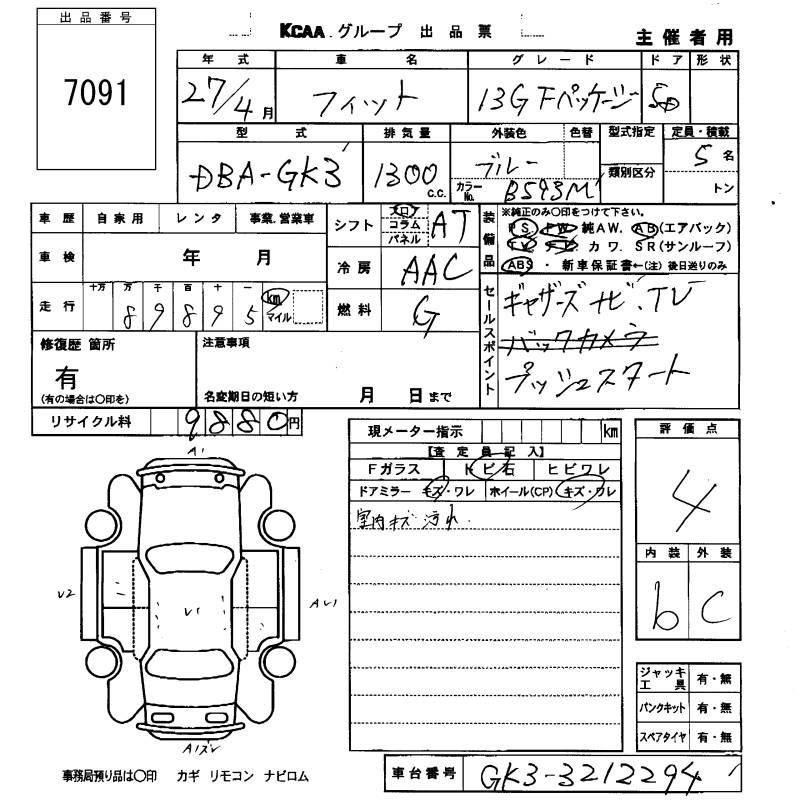 出品番号
7091
KCAA.グループ 出品票
主催者用
年式 車名 グレード ドア 形状
27/4月 フィット 13G Fパッケージ 5D
型式 排気量 外装色 色替 型式指定 定員・積載
DBA-GK3 1300 C.C. ブルー 類別区分 5名
カラーNo. B593M トン
車歴 自家用 レンタ 事業.営業車
シフト フロ コラム パネル AT
装備品 ※純正のみ○印をつけて下さい。
PS PW 純AW. AB(エアバック)
TV カワ. SR(サンルーフ)
ABS ・ 新車保証書←(注) 後日送りのみ
車検 年 月
冷房 AAC
走行 十万 万 千 百 十 一 km マイル
89895
燃料 G
セールスポイント
ギャザーズナビ.TV
バックカメラ
プッシュスタート
修復歴 箇所
有
(有の場合は○印を)
注意事項
名変期日の短い方 月 日まで
リサイクル料 9880円
現メーター指示 km
【査定員記入】
Fガラス トビ石 ヒビワレ
ドアミラー キズ・ワレ ホイール(CP) キズ・ワレ
室内キズ 汚れ
評価点
4
内装 外装
b C
A1
U2
V1
AU1
ジャッキ工具 有・無
パンクキット 有・無
スペアタイヤ 有・無
事務局預り品は○印 カギ リモコン ナビロム
車台番号 GK3-3212294